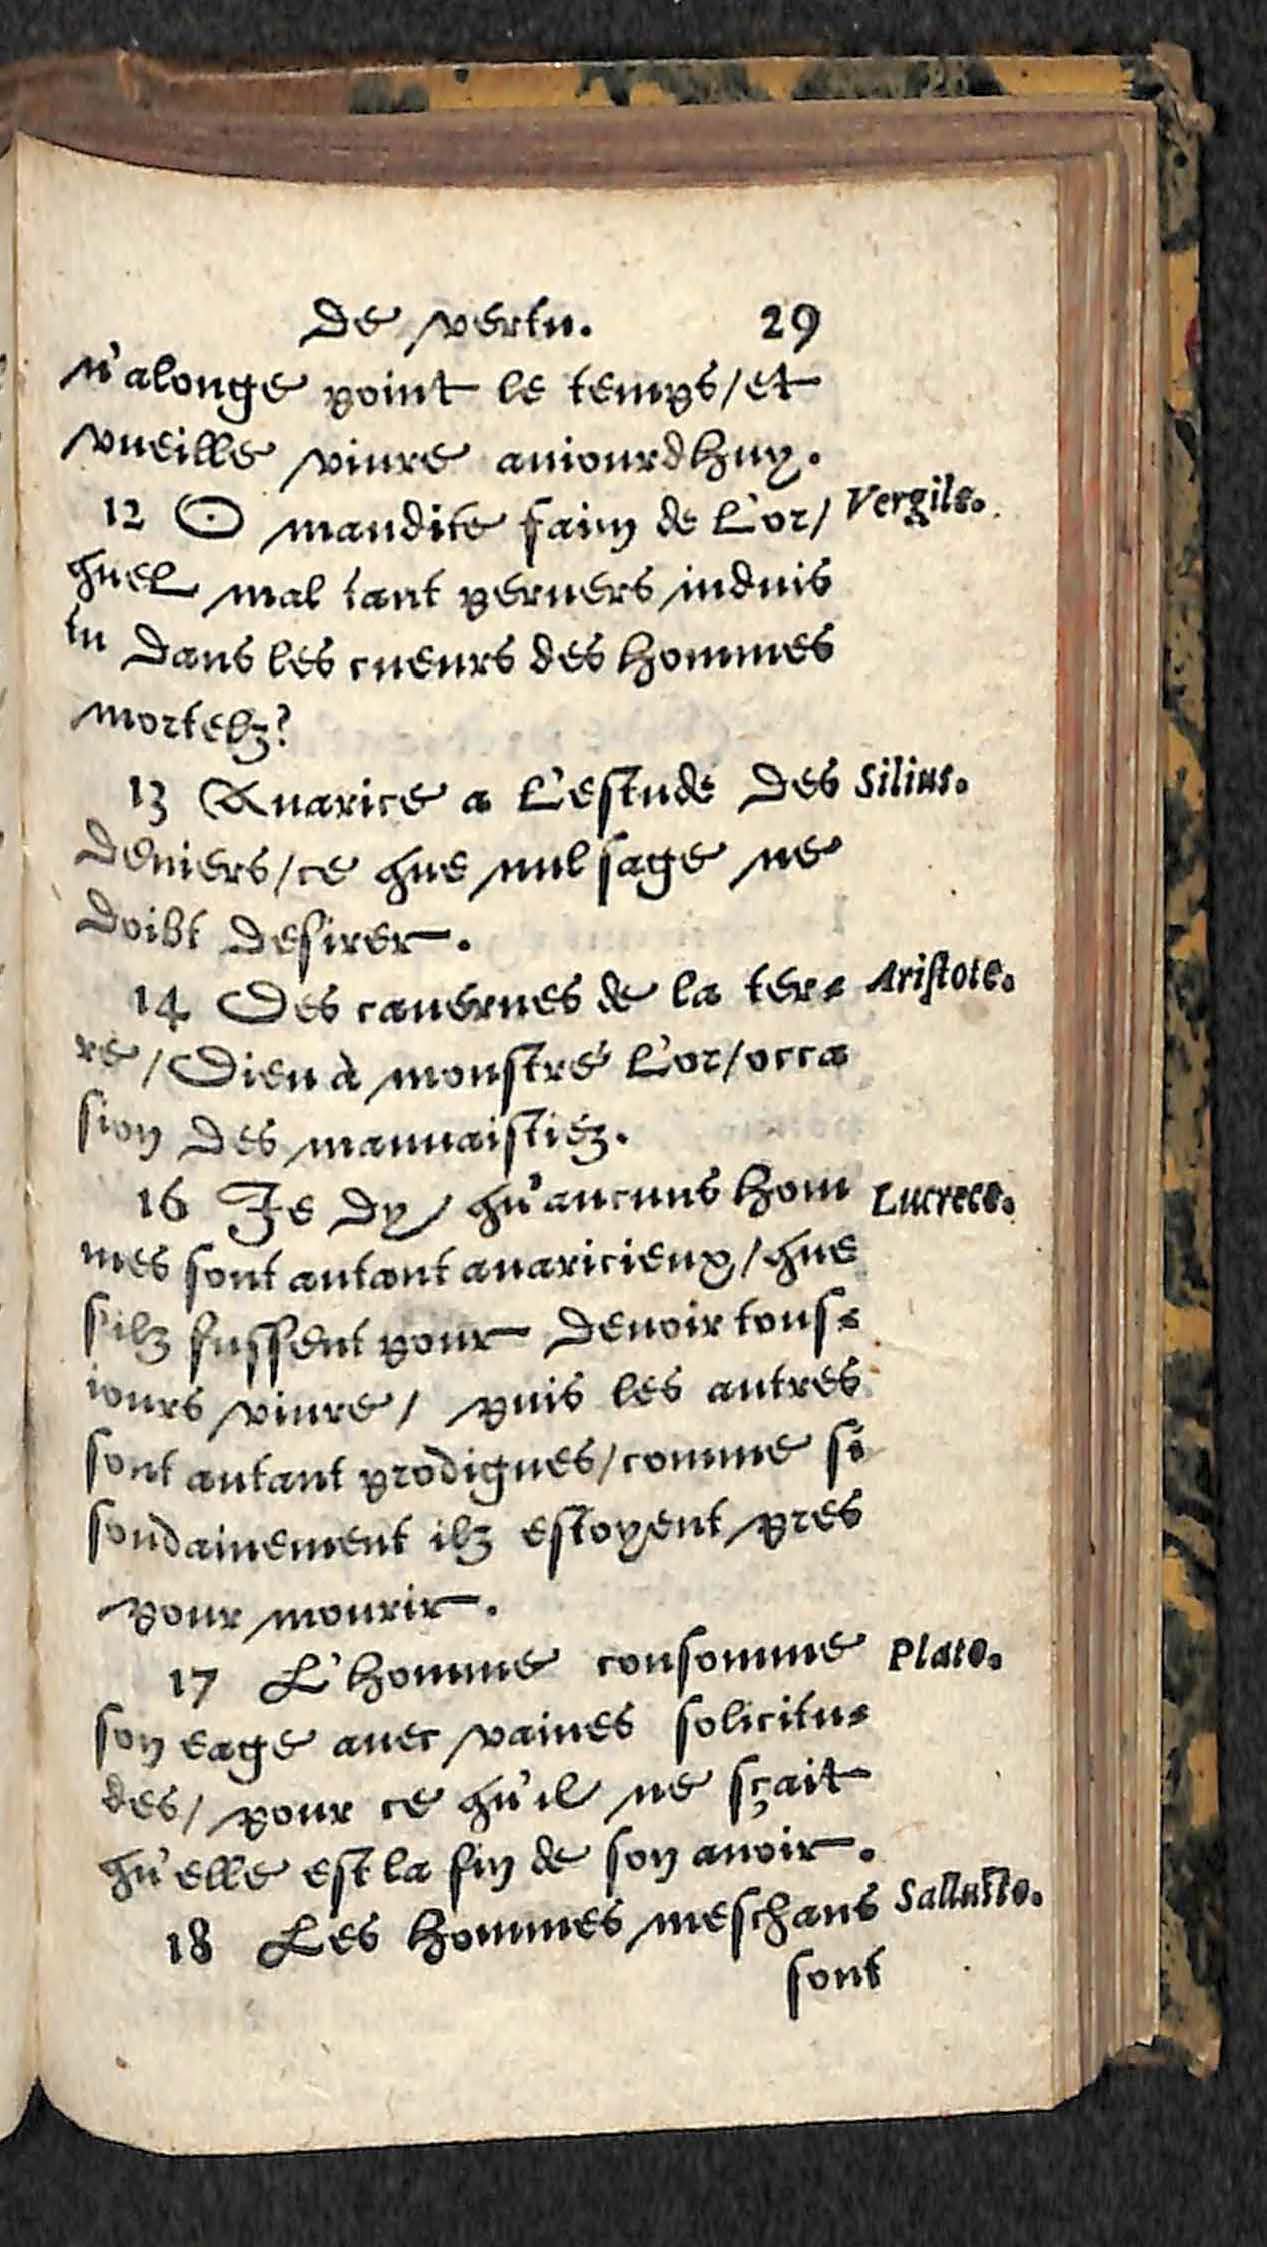 de vertu. 29
n'alonge point le temps/et
vueille viure auiourdhuy.
12 O maudite faim de l'or/ Vergile.
quel mal tant peruers induis
tu dans les cueurs des hommes
mortelz?
13 Auarice a l'estude des Silius.
deniers/ce que nul sage ne
doibt desirer.
14 Des cauernes de la ter= Aristote.
re/Dieu à monstré l'or/occa
sion des mauuaistiéz.
16 Je dy/ qu'aucuns hom Lucrece.
mes sont autant auaricieux/que
s'ilz fussent pour deuoir tous=
iours viure/ puis les autres
sont autant prodigues/comme si
soudainement ilz estoyent pres
pour mourir.
17 L'homme consomme Plato.
son eage auec vaines solicitu=
des/ pour ce qu'il ne sçait
qu'elle est la fin de son auoir.
18 Les hommes meschans Salluste.
sont